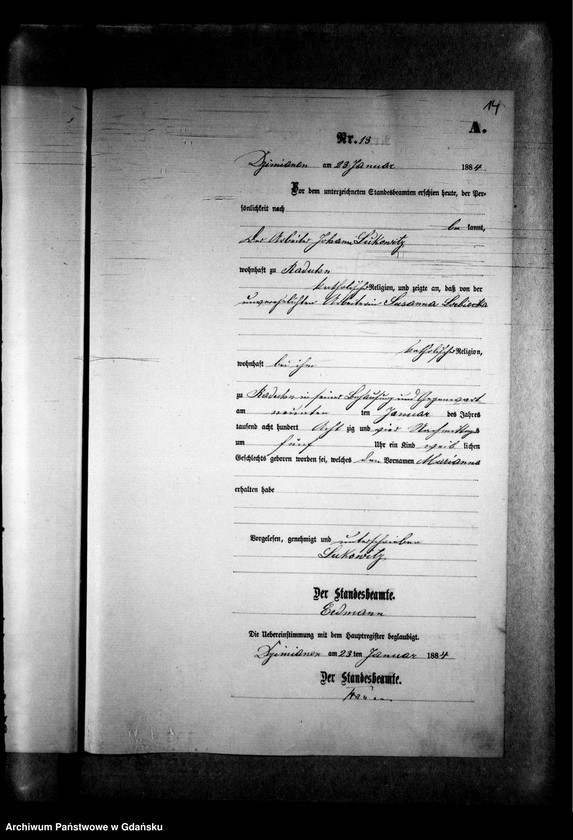 14
A.
Nr. 13
Dzimianen am 23 Januar 1884
Vor dem unterzeichneten Standesbeamten erschien heute, der Per-
sönlichkeit nach
be kannt,
der Arbeiter Johann Lukowitz
wohnhaft zu Raduhn
katholischer Religion, und zeigte an, daß von der
unverehelichten Arbeiterin Susanna
katholischer Religion,
wohnhaft bei ihm
zu Raduhn in seiner Behausung und Gegenwart
am neunten ten Januar des Jahres
tausend acht hundert Acht zig und vier Nachmittags
um fünf Uhr ein Kind weib lichen
Geschlechts geboren worden sei, welches den Vornamen Marianna
erhalten habe
Vorgelesen, genehmigt und unterschrieben
Lukowitz
Der Standesbeamte.
Erdmann
Die Uebereinstimmung mit dem Hauptregister beglaubigt.
Dzimianen am 23 ten Januar 1884
Der Standesbeamte.
Archiwum Państwowe w Gdańsku